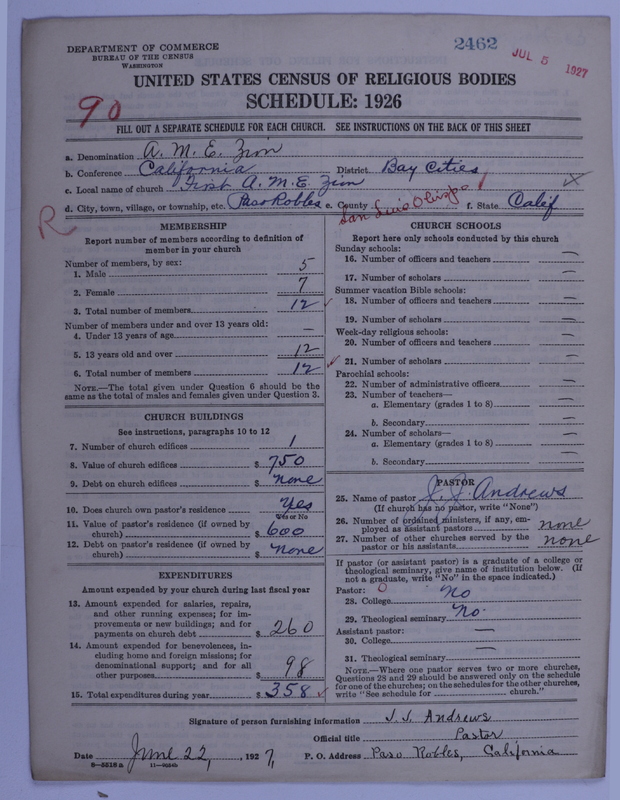 DEPARTMENT OF COMMERCE
BUREAU OF THE CENSUS
WASHINGTON
2462
JUL 5 1927
UNITED STATES CENSUS OF RELIGIOUS BODIES
SCHEDULE: 1926
90
FILL OUT A SEPARATE SCHEDULE FOR EACH CHURCH. SEE INSTRUCTIONS ON THE BACK OF THIS SHEET
a. Denomination A. M. E. Zion
b. Conference California District Bay Cities
c. Local name of church First A. M. E. Zion
d. City, town, village, or township, etc. Paso Robles e. County San Luis Obispo f. State Calif
R
MEMBERSHIP
Report number of members according to definition of
member in your church
Number of members, by sex:
1. Male 5
2. Female 7
3. Total number of members 12
Number of members under and over 13 years old:
4. Under 13 years of age —
5. 13 years old and over 12
6. Total number of members 12
NOTE.—The total given under Question 6 should be the
same as the total of males and females given under Question 3.
CHURCH BUILDINGS
See instructions, paragraphs 10 to 12
7. Number of church edifices 1
8. Value of church edifices $ 750
9. Debt on church edifices $ none
10. Does church own pastor's residence Yes
Yes or No
11. Value of pastor's residence (if owned by
church) $ 600
12. Debt on pastor's residence (if owned by
church) $ none
EXPENDITURES
Amount expended by your church during last fiscal year
13. Amount expended for salaries, repairs,
and other running expenses; for im-
provements or new buildings; and for
payments on church debt $ 260
14. Amount expended for benevolences, in-
cluding home and foreign missions; for
denominational support; and for all
other purposes $ 98
15. Total expenditures during year $ 358
CHURCH SCHOOLS
Report here only schools conducted by this church
Sunday schools:
16. Number of officers and teachers —
17. Number of scholars —
Summer vacation Bible schools:
18. Number of officers and teachers —
19. Number of scholars —
Week-day religious schools:
20. Number of officers and teachers —
21. Number of scholars —
Parochial schools:
22. Number of administrative officers —
23. Number of teachers—
a. Elementary (grades 1 to 8) —
b. Secondary —
24. Number of scholars—
a. Elementary (grades 1 to 8) —
b. Secondary —
PASTOR
25. Name of pastor J. J. Andrews
(If church has no pastor, write "None")
26. Number of ordained ministers, if any, em-
ployed as assistant pastors none
27. Number of other churches served by the
pastor or his assistants none
If pastor (or assistant pastor) is a graduate of a college or
theological seminary, give name of institution below. (If
not a graduate, write "No" in the space indicated.)
Pastor: 0
28. College No
29. Theological seminary No.
Assistant pastor:
30. College —
31. Theological seminary —
NOTE.—Where one pastor serves two or more churches,
Questions 28 and 29 should be answered only on the schedule
for one of the churches; on the schedules for the other churches,
write "See schedule for church."
Signature of person furnishing information J. J. Andrews
Official title Pastor
Date June 22, 1927, P. O. Address Paso Robles, California